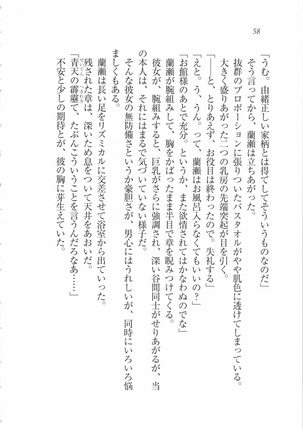 58
「うむ。由緒正しい家柄とは得てしてそういうものなのだ」
そう言ってから、蘭瀬は立ちあがった。
抜群のプロポーションに張りついたバスタオルがやや肌色に透けてしまっている。
大きく盛りあがった二つの乳房の先端突起が目を引く。
「――と、とりあえず、お役目は終わったので、失礼する」
「えと。う、うん。って、蘭瀬はお風呂入らなくてもいいの？」
「お館様のあとで充分。というか、また欲情されてはかなわぬのでな」
彼女が、腕組みして、胸をかばったまま半目で章を睨みつけてくる。
が、腕組みすると、巨乳がさらに強調され、深い谷間同士がせりあがるが、当
の本人は、それにはまるで気づいていない様子だ。
そんな彼女の無防備さというか豪胆さが、男心にはうれしいが、同時にいろいろ悩
ましくもある。
蘭瀬は長い足をリズミカルに交差させて浴室から出ていった。
残された章は、深いため息をついて天井をあおいだ。
「青天の霹靂て、たぶんこういうことを言うんだろなぁ……」
不安と少しの期待とが、彼の胸に芽生えていた。